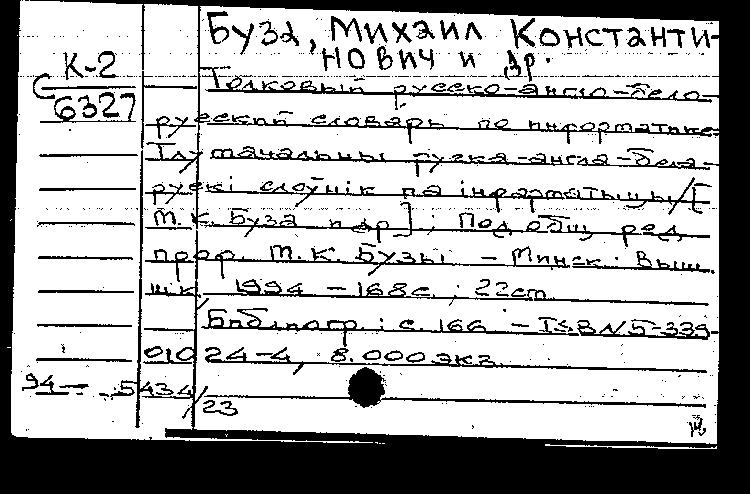 Буза, Михаил Константи-
нович и др.
К-2
С 6327
Толковый русско-англо-бело-
русский словарь по информатике=
Тлумачальны руска-англа-бела-
рускі слоўнік па інфарматыцы/[
М.К. Буза и др]; Под общ ред.
проф. М.К. Бузы - Минск: Выш.
шк, 1994 - 168с.; 22см
Библиогр.: с. 166 - ISBN 5-339-
01024-4, 8.000 экз
94- 5434/23